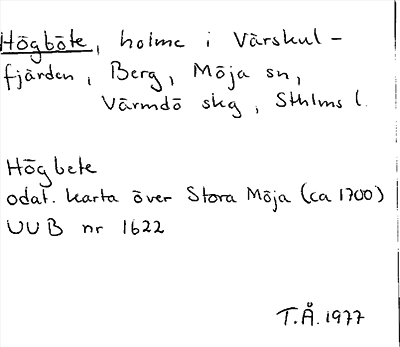 Högböte, holme i Värskul-
fjärden, Berg, Möja sn,
Värmdö skg, Sthlms l.
Högbete
odat. karta över Stora Möja (ca 1700)
UUB nr 1622
T.Å. 1977